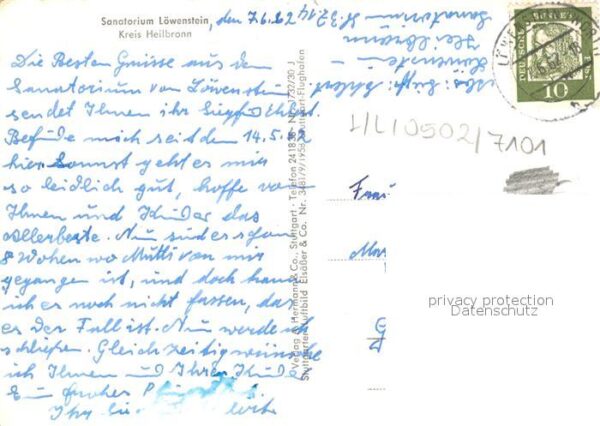 Sanatorium Löwenstein, den 7.6.62
Kreis Heilbronn
Die Besten Grüsse aus dem
Sanatorium von Löwenstein
sendet Ihnen ihr Siegfr.
Befinde mich seit dem 14.5.
hier sonnst geht es mir
so leidlich gut, hoffe von
Ihnen und Kinder das
allerbeste. Nun sind es schon
8 Wochen wo Mutti von mir
gegangen ist, und doch kann
ich er noch nicht fassen, das
er der Fall ist. Nun werde ich
schließen. Gleichzeitig wünsche
ich Ihnen und Ihren Kinder
Ein frohes
Ihr
Sanatorium
Heilbronn
Löwenstein
Verlag Hermann & Co., Stuttgart · Telefon 241838 Nr. 1737/30 J
Stuttgarter Luftbild Elsäßer & Co. Nr. 3681/9/1958 Stuttgart-Flughafen
DEUTSCHE BUNDESPOST
10
L/L10502/7101
Frau
privacy protection
Datenschutz